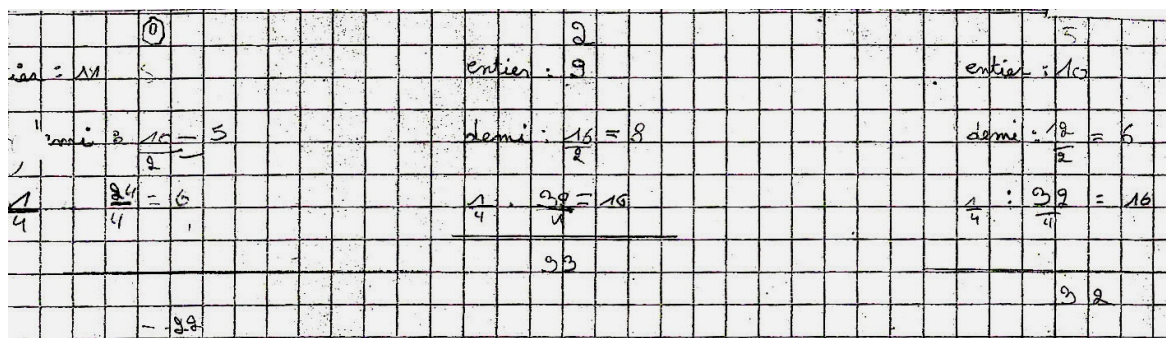 0
ier : 11
mi : 10/2 = 5
1/4 24/4 = 6
- 22
2
entier : 9
demi : 16/2 = 8
1/4 . 32/4 = 16
33
5
entier : 10
demi : 12/2 = 6
1/4 : 32/4 = 16
32